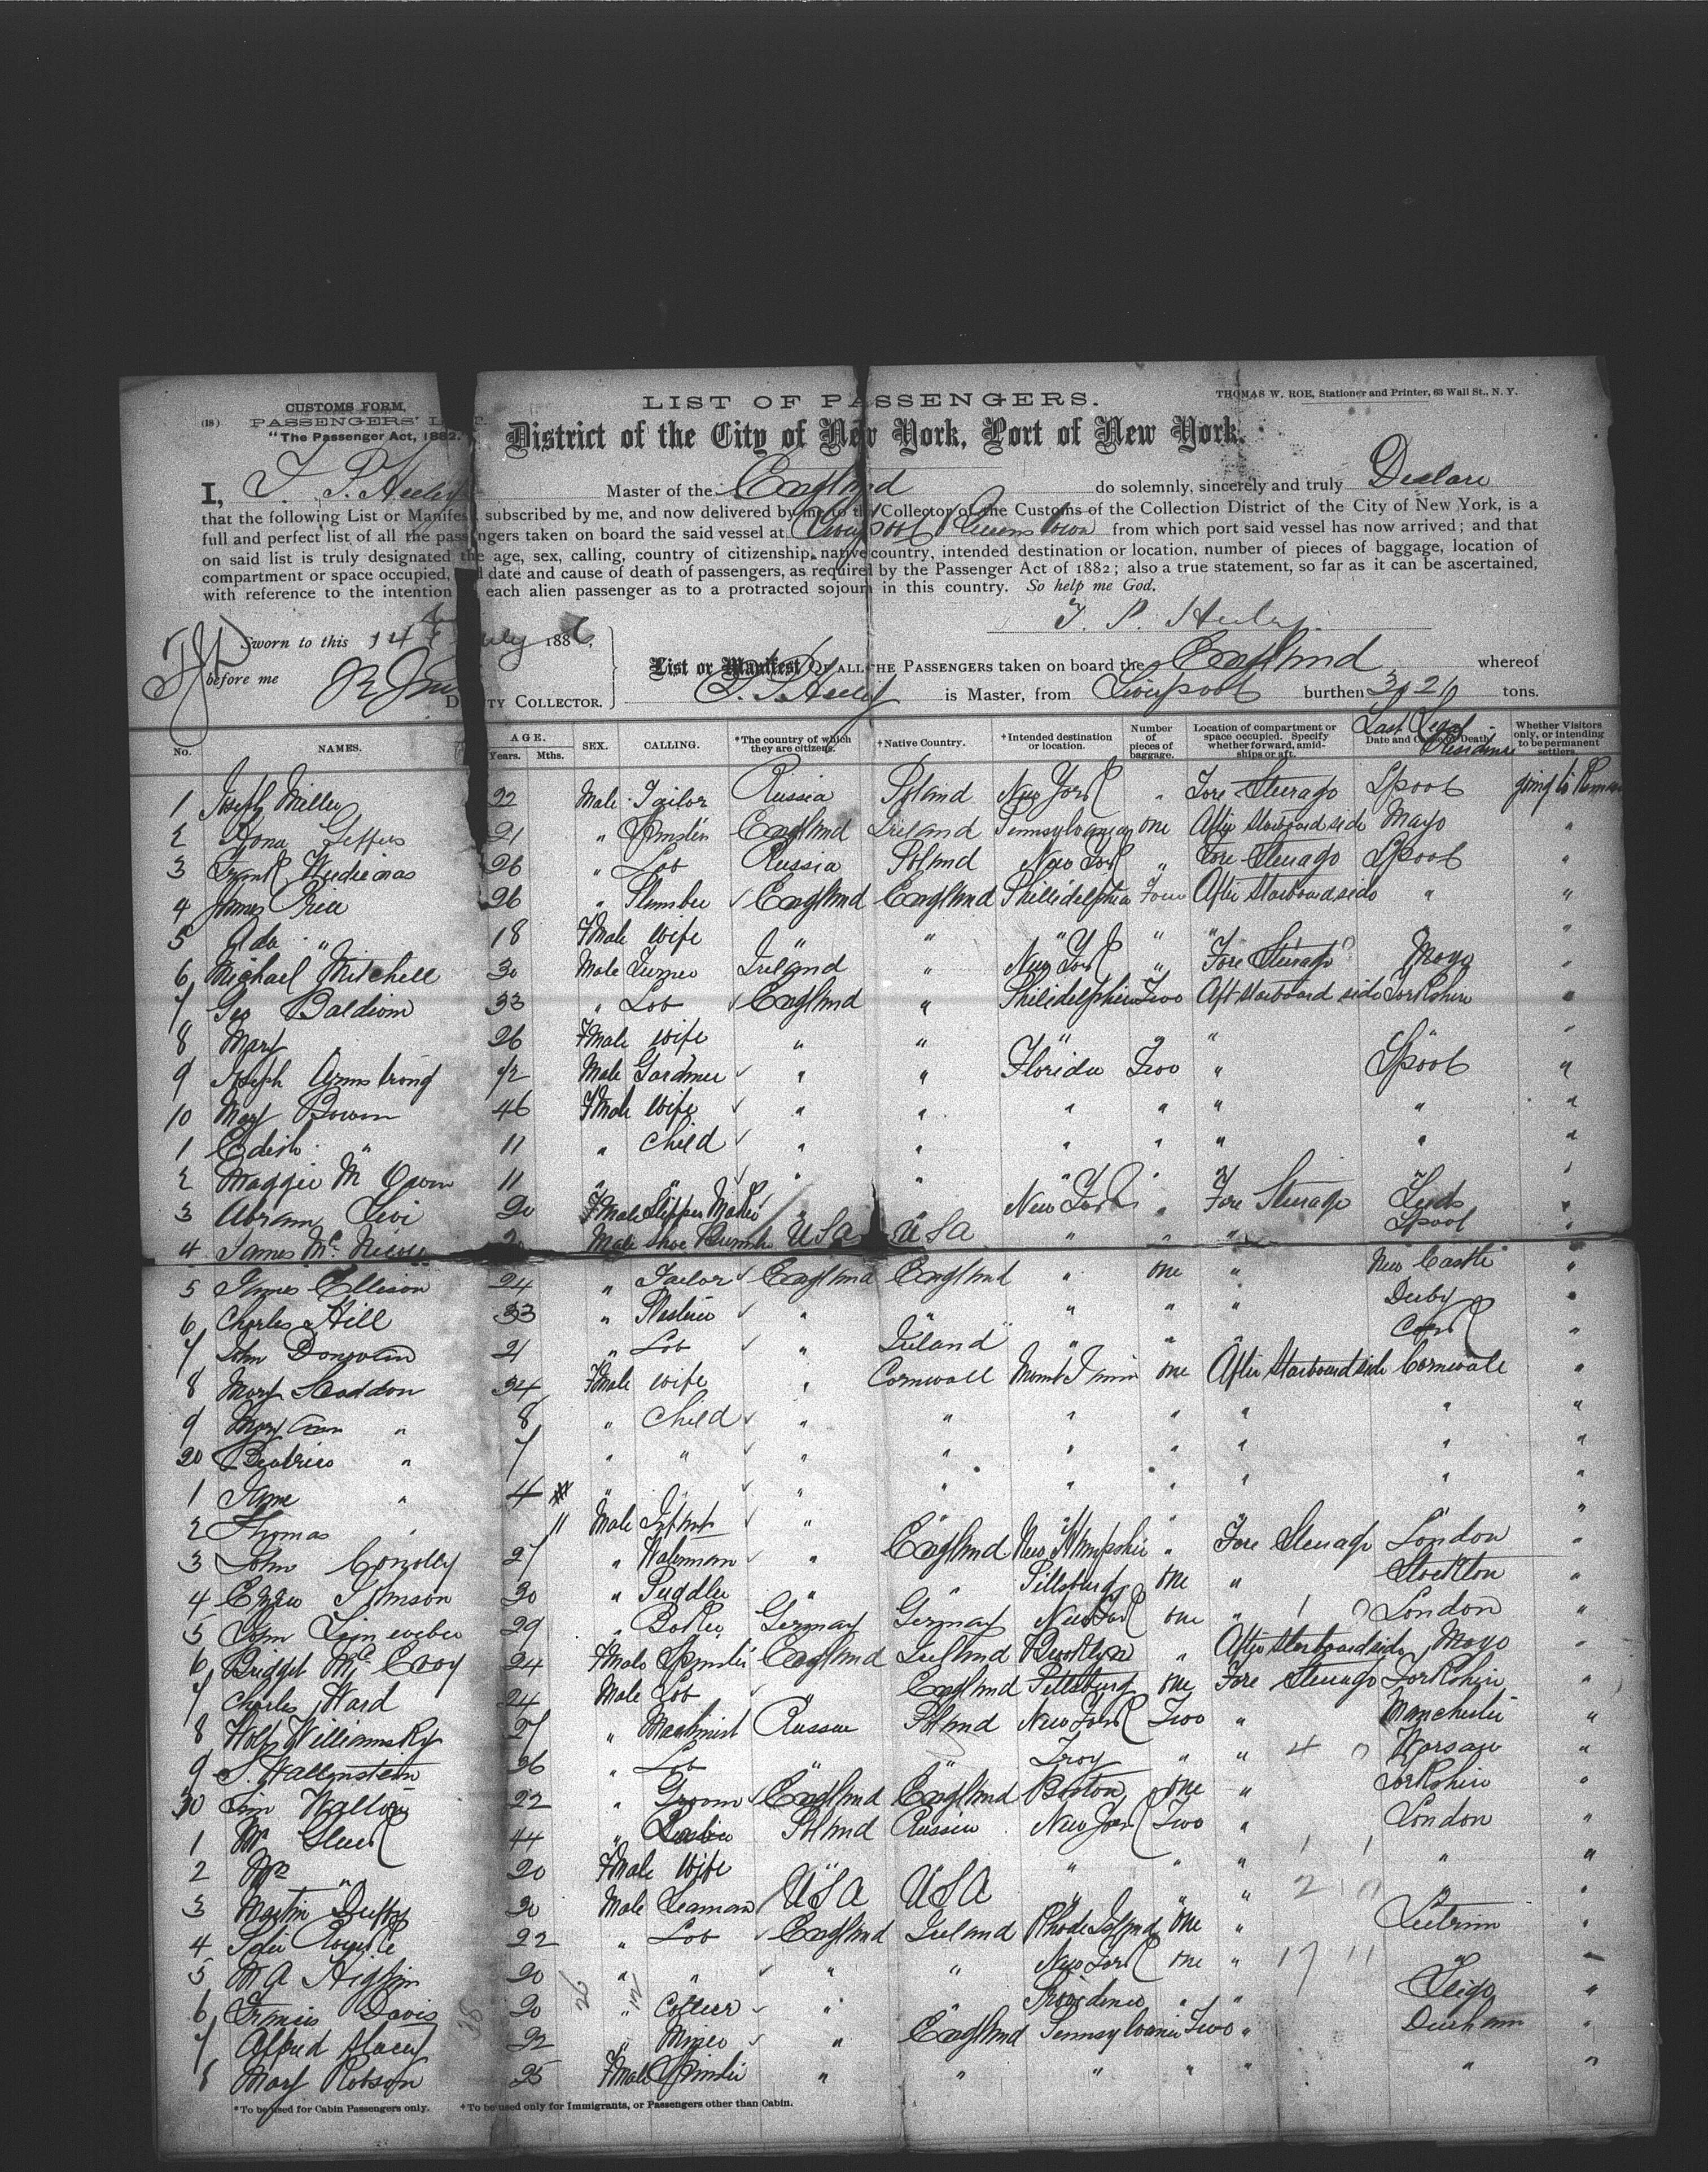 CUSTOMS FORM.
LIST OF PASSENGERS.
THOMAS W. ROE, Stationer and Printer, 63 Wall St., N. Y.
(18) PASSENGERS' LIST.
"The Passenger Act, 1882."
District of the City of New York, Port of New York.
I, T. P. Heeley Master of the England do solemnly, sincerely and truly Declare
that the following List or Manifest, subscribed by me, and now delivered by me to the Collector of the Customs of the Collection District of the City of New York, is a
full and perfect list of all the passengers taken on board the said vessel at Liverpool & Queenstown from which port said vessel has now arrived; and that
on said list is truly designated the age, sex, calling, country of citizenship, native country, intended destination or location, number of pieces of baggage, location of
compartment or space occupied, date and cause of death of passengers, as required by the Passenger Act of 1882; also a true statement, so far as it can be ascertained,
with reference to the intention each alien passenger as to a protracted sojourn in this country. So help me God.
T. P. Heeley
Sworn to this 14 July 1886,
before me
List or Manifest OF ALL THE PASSENGERS taken on board the England whereof
DEPUTY COLLECTOR.
T. P. Heeley is Master, from Liverpool burthen tons.
No. NAMES. AGE. Years. Mths. SEX. CALLING. *The country of which they are citizens. †Native Country. †Intended destination or location. Number of pieces of baggage. Location of compartment or space occupied. Specify whether forward, amidships or aft. Date and Cause of Death. Last Legal Residence Whether Visitors only, or intending to be permanent settlers.
1 Joseph Miller 22 Male Tailor Russia Poland New York " Fore Steerage Lpool going to Remain
2 Jeffers 21 " Spinster England Ireland Pennsylvania one After Starboard side Mayo "
3 Frank 26 " Lab Russia Poland New York " Fore Steerage Lpool "
4 James Price 26 " Plumber England England Philidelphia Four After Starboard side " "
5 Ada " 18 FMale wife " " " " " "
6 Michael Mitchell 30 Male Ireland " New York " Fore Steerage Mayo "
7 Geo Baldwin 33 " Lab England " Philidelphia Two Aft Starboard side Yorkshire "
8 Mary " 26 FMale wife " " " " " " "
9 Joseph Armstrong 42 Male Gardner " " Florida Two " Lpool "
10 Mary Bowen 46 FMale wife " " " " " " "
1 Edith " 11 " Child " " " " " " "
2 Maggie M Owen 11 " " " " " " "
3 Abram Levi 20 FMale Slipper Maker " " New York " Fore Steerage Leeds "
4 James Mc Male USA USA " " " Lpool "
5 James Ellison 24 " Tailor England England " one " New Castle "
6 Charles Hill 33 " " " " " " Derby "
7 John Donovan 21 " Lab " Ireland " " Cork "
8 Mary Scaddon 34 FMale wife " Cornwall one After Starboard side Cornwall "
9 Mary Ann " 8 " Child " " " " " " "
20 Beatrice " 7 " " " " " " " " "
1 Jane " 4 " " " " " " " " "
2 Thomas " 11 Male Infant " " " " "
3 John Conolly 27 " Waterman " England New Hampshire " Fore Steerage London "
4 Johnson 30 " Puddler " " Pittsburg one " Stockton "
5 John 29 " Germany Germany New York one " London "
6 Bridget Mc Evoy 24 FMale Spinster England Ireland Brooklyn " After Starboard side Mayo "
7 Charles Ward 24 Male Lab " England Pittsburg one Fore Steerage Yorkshire "
8 Wolf Williamsky 27 " Machinist Russia Poland New York Two " Manchester "
9 S. Wallenstein 36 " Lab " " Troy " " 4 0 Warsaw "
30 Jim 22 " Groom England England Boston one " Yorkshire "
1 Mr 44 " Poland Russia New York Two " London "
2 Mrs " 20 FMale Wife " " " " " " "
3 Martin Duffy 30 Male Seaman USA USA " " " 2 "
4 22 " Lab England Ireland Rhode Island one " Leitrim "
5 20 " " " " New York one " 17 11 " "
6 Francis Davis 20 " Collier " " Providence " " Sligo "
7 Alfred 22 " Miner " England Pennsylvania Two " Durham "
8 Mary Robson 25 FMale Spinster " " " " " " "
*To be used for Cabin Passengers only. †To be used only for Immigrants, or Passengers other than Cabin.